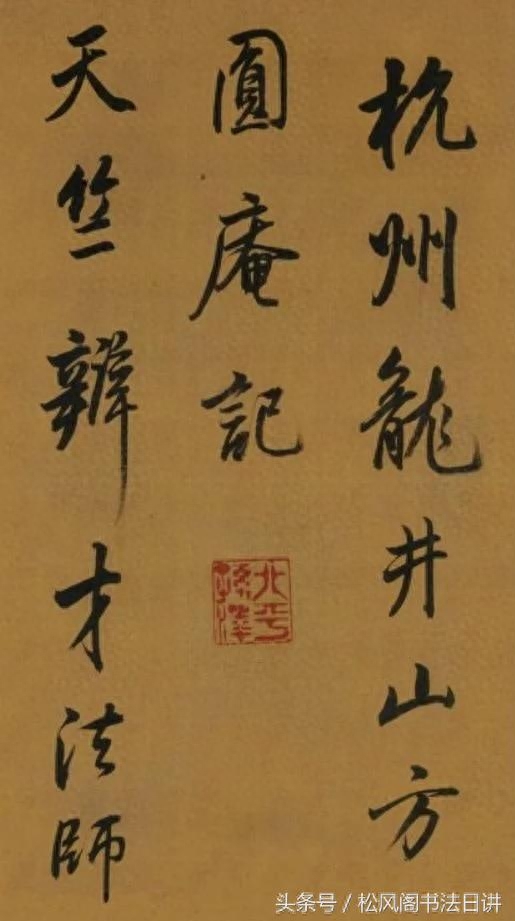 杭州龍井山方
圓庵記
天竺辯才法師
北平
头条号 / 松风阁书法日讲